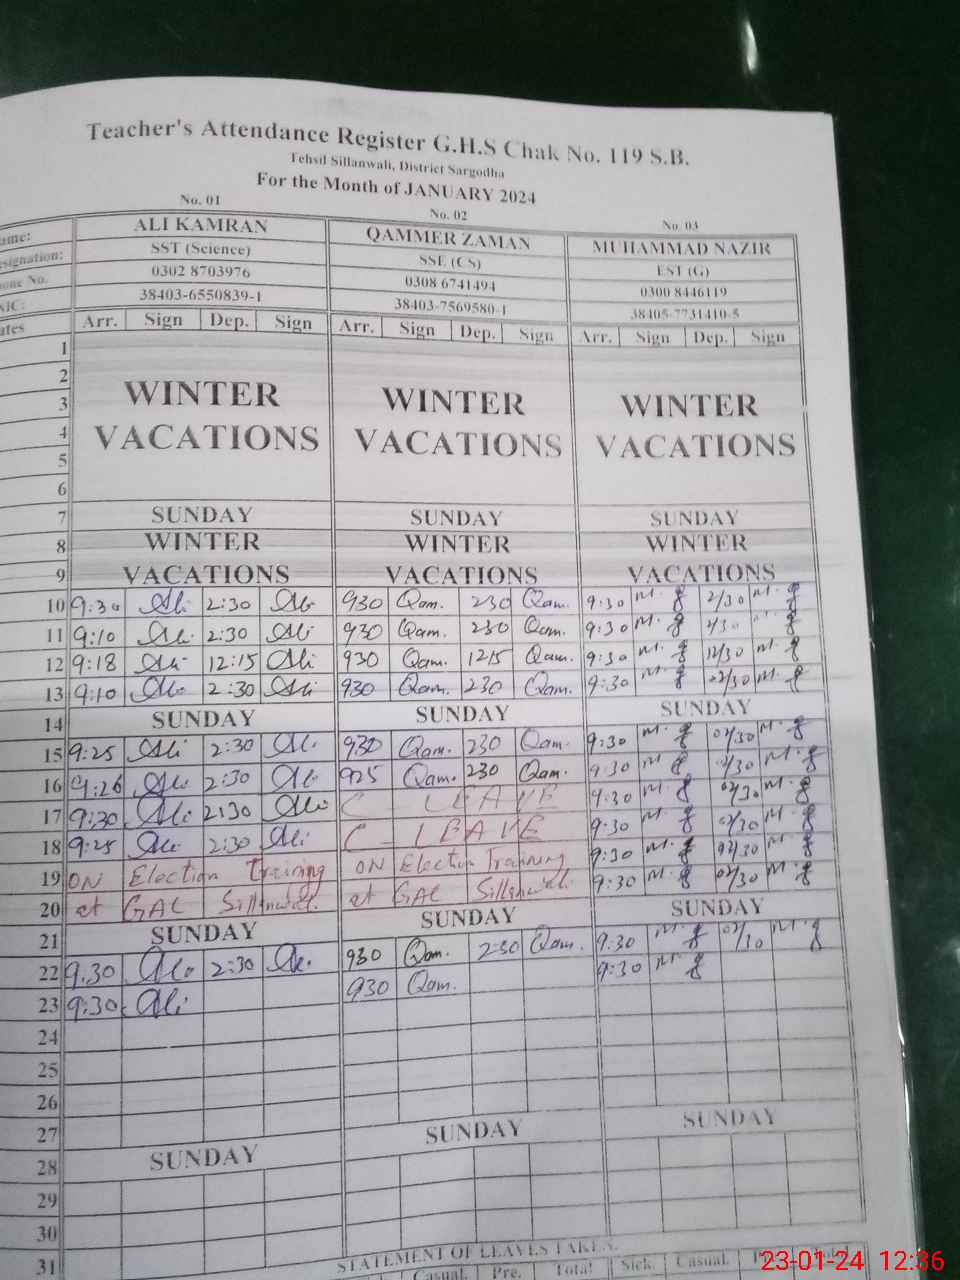 Teacher's Attendance Register G.H.S Chak No. 119 S.B.
Tehsil Sillanwali, District Sargodha
For the Month of JANUARY 2024
No. 01 No. 02 No. 03
ame: ALI KAMRAN QAMMER ZAMAN MUHAMMAD NAZIR
esignation: SST (Science) SSE (CS) EST (G)
one No. 0302 8703976 0308 6741494 0300 8446119
NIC: 38403-6550839-1 38403-7569580-1 38405-7731410-5
ates Arr. Sign Dep. Sign Arr. Sign Dep. Sign Arr. Sign Dep. Sign
1
2
3 WINTER WINTER WINTER
4 VACATIONS VACATIONS VACATIONS
5
6
7 SUNDAY SUNDAY SUNDAY
8 WINTER WINTER WINTER
9 VACATIONS VACATIONS VACATIONS
10 9:30 Ali 2:30 Ali 930 Qam. 230 Qam. 9:30 2/30
11 9:10 Ali 2:30 Ali 930 Qam. 230 Qam. 9:30 2/30
12 9:18 Ali 12:15 Ali 930 Qam. 1215 Qam. 9:30 12/30
13 9:10 Ali 2:30 Ali 930 Qam. 230 Qam. 9:30 02/30
14 SUNDAY SUNDAY SUNDAY
15 9:25 Ali 2:30 Ali 930 Qam. 230 Qam. 9:30 02/30
16 9:26 Ali 2:30 Ali 925 Qam. 230 Qam. 9:30 02/30
17 9:30 Ali 2:30 Ali C LEAVE 9:30 02/30
18 9:25 Ali 2:30 Ali C LEAVE 9:30 02/30
19 ON Election Training ON Election Training 9:30 02/30
20 at GAC Sillanwali at GAC Sillanwali 9:30 02/30
21 SUNDAY SUNDAY SUNDAY
22 9:30 Ali 2:30 Ali 930 Qam. 230 Qam. 9:30 02/30
23 9:30 Ali 930 Qam. 9:30
24
25
26
27
28 SUNDAY SUNDAY SUNDAY
29
30
31
STATEMENT OF LEAVES TAKEN.
Casual. Pre. Total Sick. Casual.
23-01-24 12:36